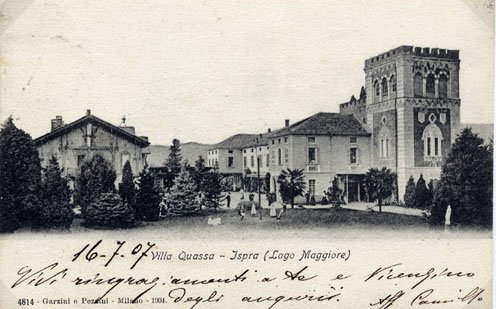 16-7-07 Villa Quassa - Ispra (Lago Maggiore)
Vivi ringraziamenti a te e Vicenzino
4814 - Garzini e Pezzini - Milano - 1904. degli augurii. Aff Camillo